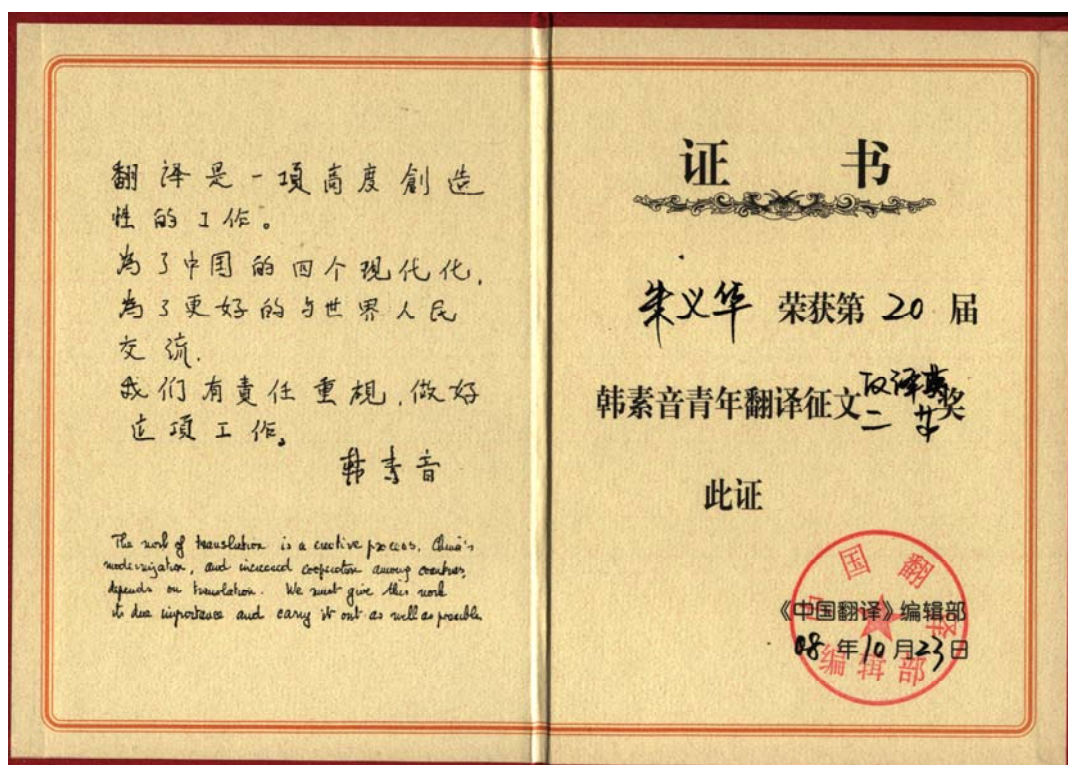 翻译是一項高度創造
性的工作。
為了中国的四个現代化,
為了更好的与世界人民
交流.
我们有責任重視,做好
这項工作。
韩素音
The work of translation is a creative process. China's
modernization, and increased cooperation among countries,
depends on translation. We must give this work
its due importance and carry it out as well as possible.
证 书
朱义华 荣获第 20 届
韩素音青年翻译征文 汉译英
二 等 奖
此证
《中国翻译》编辑部
08 年 10 月 23 日
中国翻译
编辑部